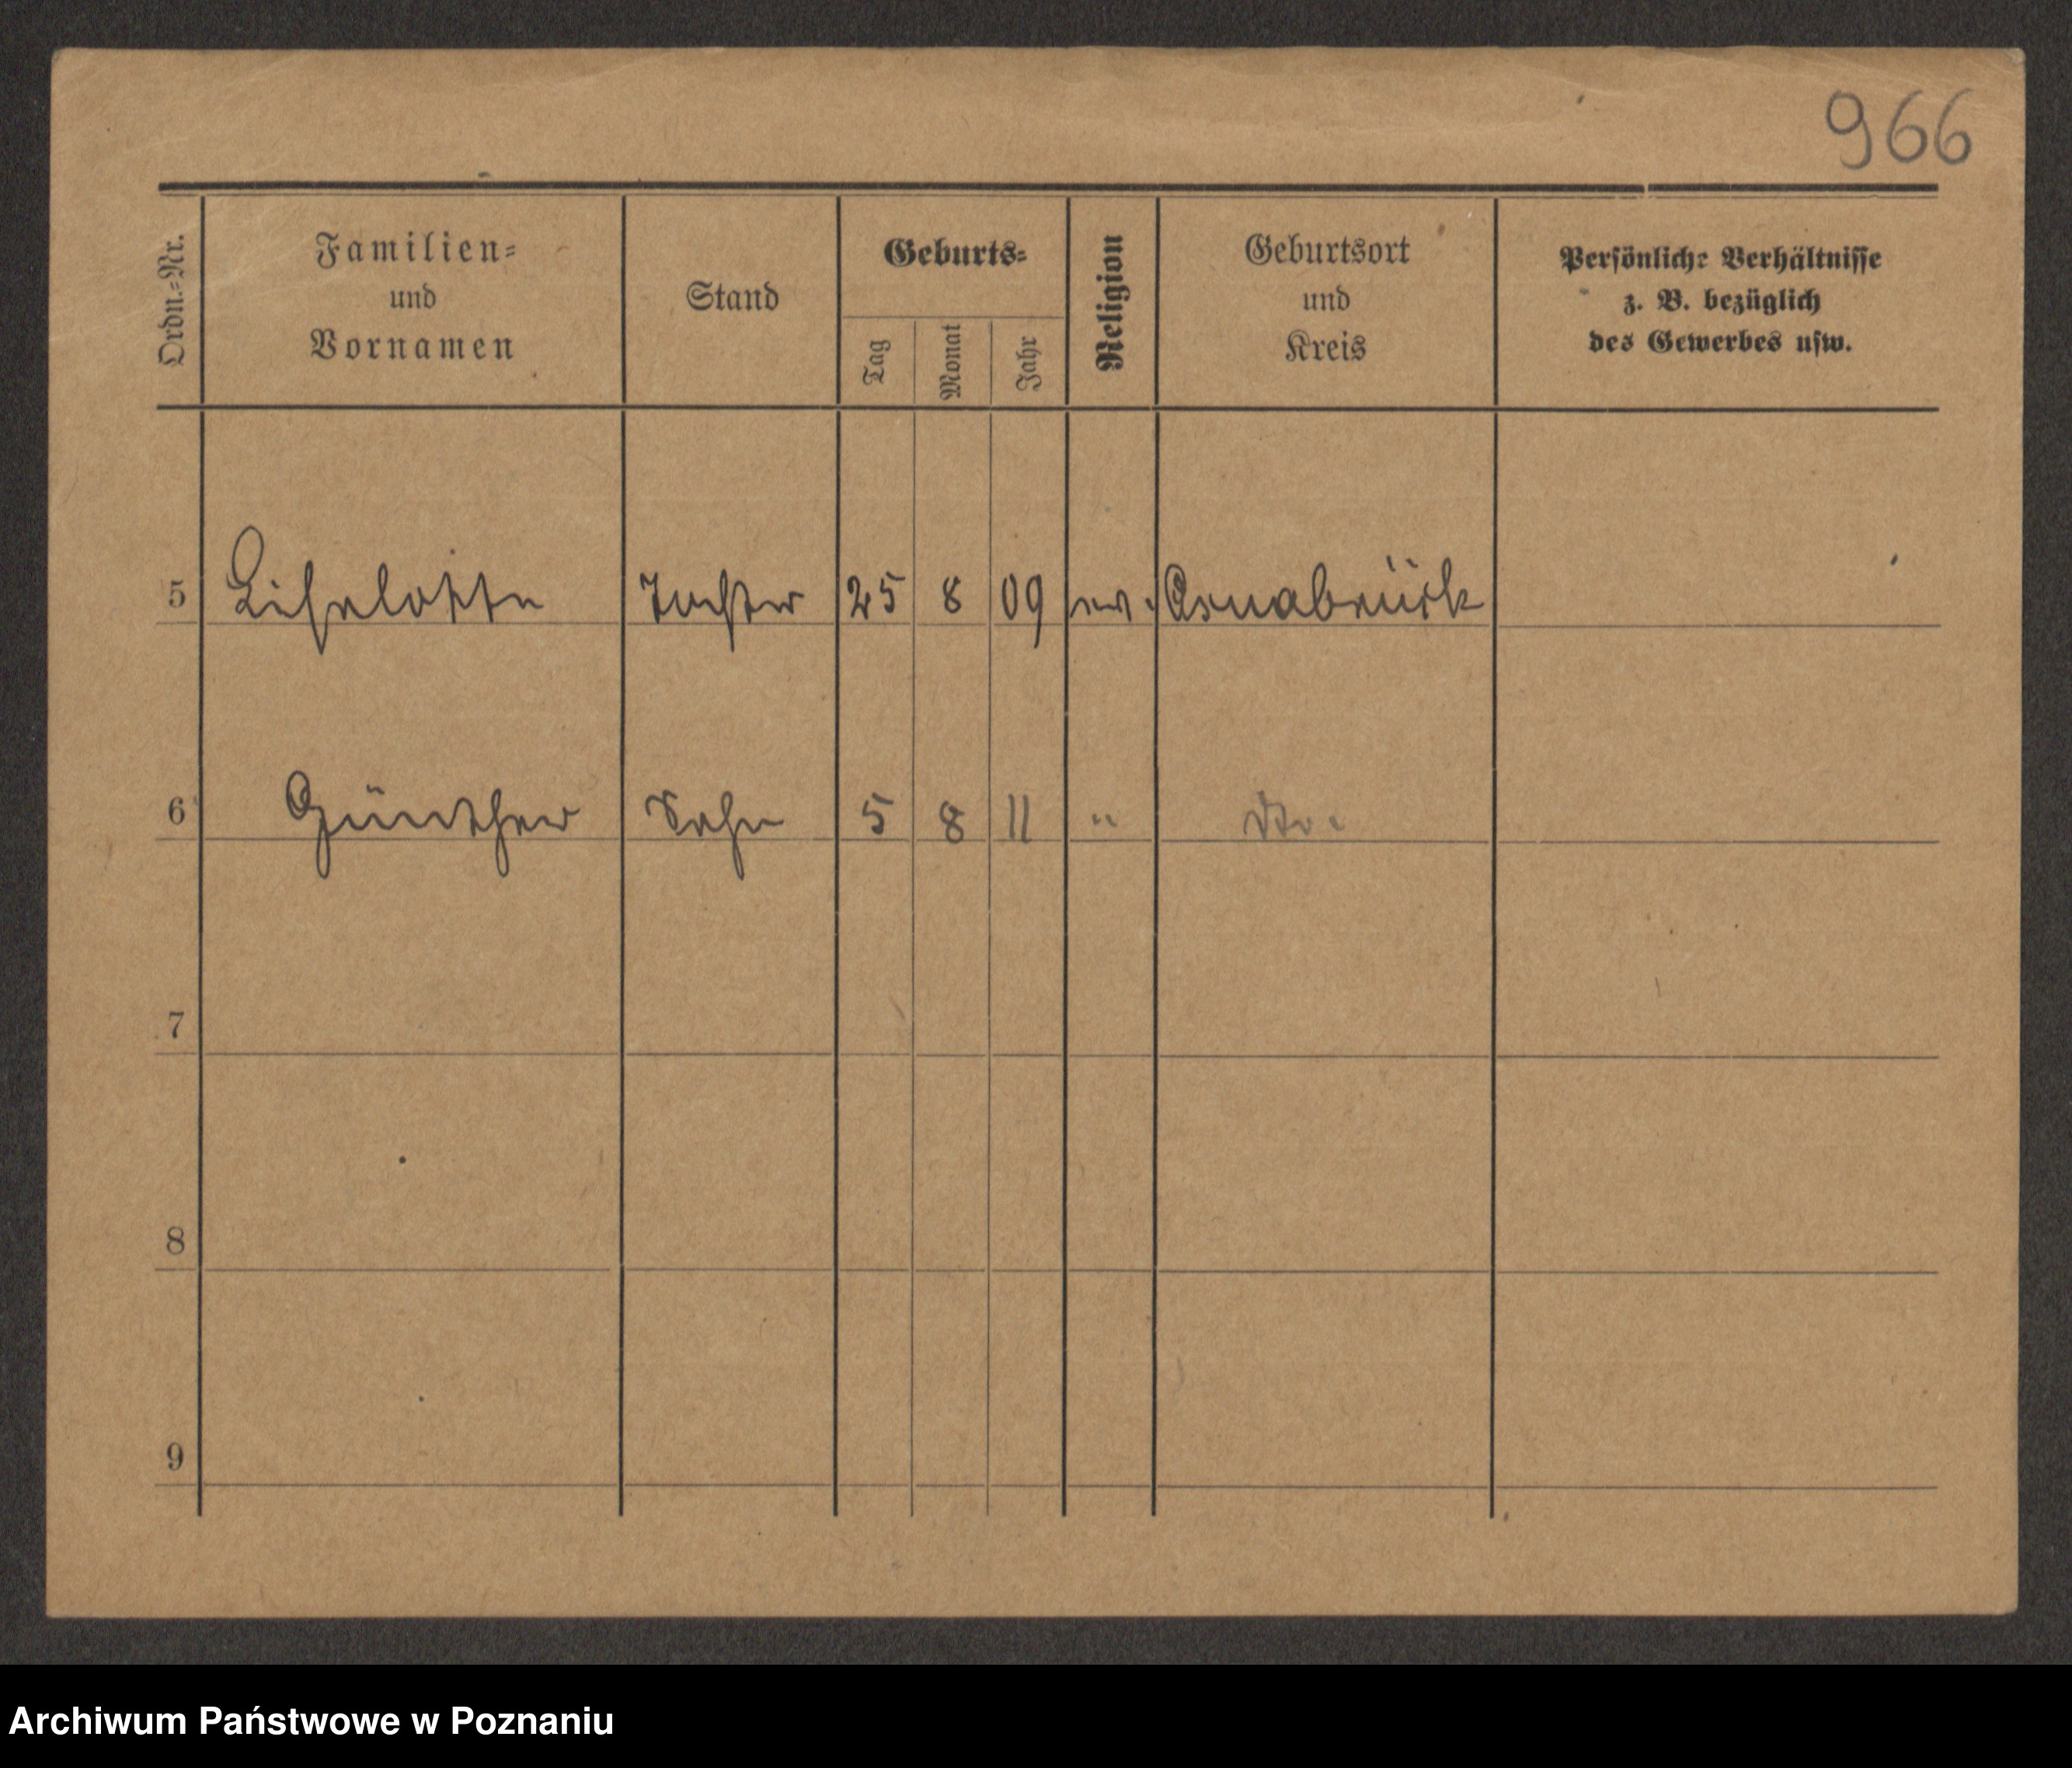 966
Ordn.-Nr.
Familien-
und
Vornamen
Stand
Geburts-
Tag
Monat
Jahr
Religion
Geburtsort
und
Kreis
Persönliche Verhältnisse
z. B. bezüglich
des Gewerbes usw.
5 Liselotte Tochter 25 8 09 ev. Osnabrück
6 Günther Sohn 5 8 11 " dto.
7
8
9
Archiwum Państwowe w Poznaniu